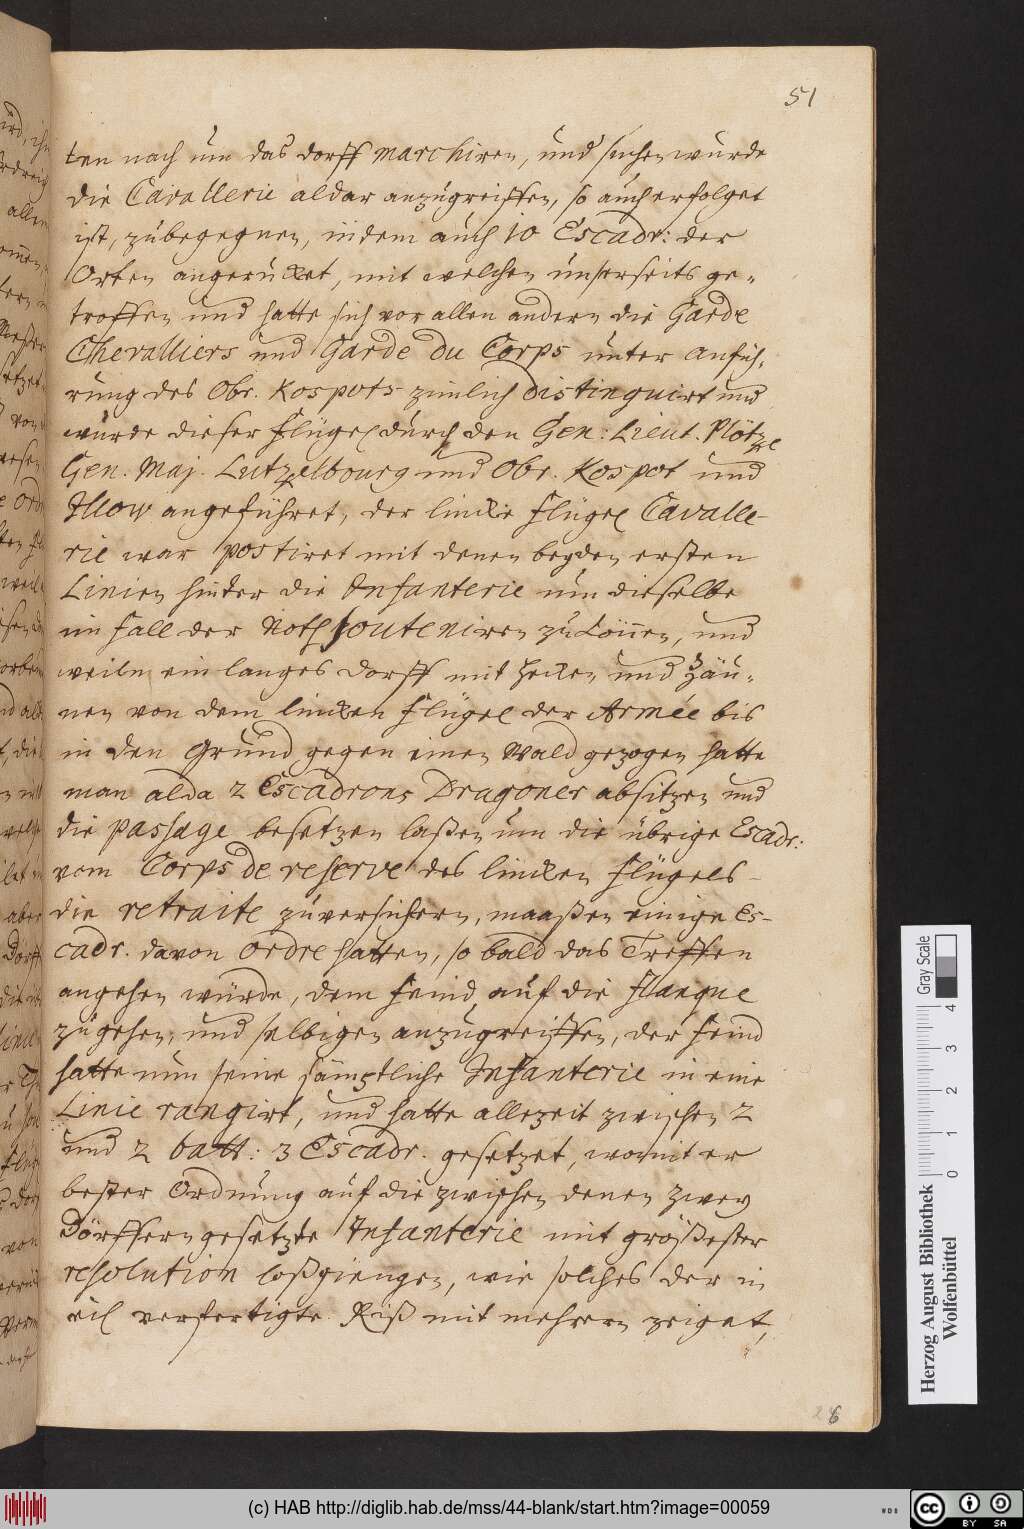 51
ten nach um das dorff marchiren, und suchen wurde
die Cavallerie aldar anzugreiffen, so auch erfolget
ist, zubegegnen, indem auch 10 Escadr: der
Orten angerücket, mit welchen unserseits ge-
troffen und hatte sich vor allen andern die Garde
Chevalliers und Garde du Corps unter anfüh-
rung des Obr. Kospots zimlich distinguirt und
wurde dieser Flügel durch den Gen: Lieut. Plötze
Gen. Maj. Lutzelbourg und Obr. Kospot und
Illow angeführet, der lincke Flügel Cavalle-
rie war postiret mit denen beyden ersten
Linien hinter die Infanterie um dieselbe
im Fall der Noth souteniren zu können, und
weiln ein langes dorff mit Hecken und Zäu-
nen von dem lincken Flügel der Armée bis
in den Grund gegen einen Wald gezogen hatte
man alda 2 Escadrons Dragoner absitzen und
die passage besetzen laßen um die übrige Escadr:
vom Corps de reserve des lincken Flügels
die retraite zuversichern, maaßen einige Es-
cadr. davon ordre hatten, so bald das Treffen
angehen würde, dem Feind auf die Flanque
zugehen, und selbigen anzugreiffen, der Feind
hatte nun seine sämptliche Infanterie in eine
Linie rangirt, und hatte allezeit zwischen 2
und 2 batt: 3 Escadr. gesetzet, womit er
bester Ordnung auf die zwischen denen zwey
Dörffern gesetzte Infanterie mit größester
resolution loßgiengen, wie solches der in
eil verfertigte Riß mit mehrern zeiget,
26
Herzog August Bibliothek
Wolfenbüttel
0 1 2 3 4
Gray Scale
(c) HAB http://diglib.hab.de/mss/44-blank/start.htm?image=00059
cc BY SA